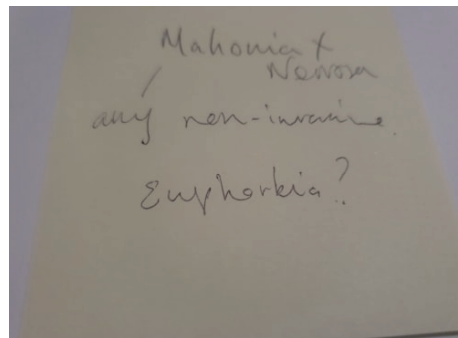 Mahonia x
Nervosa
any non-invasive
Euphorbia?